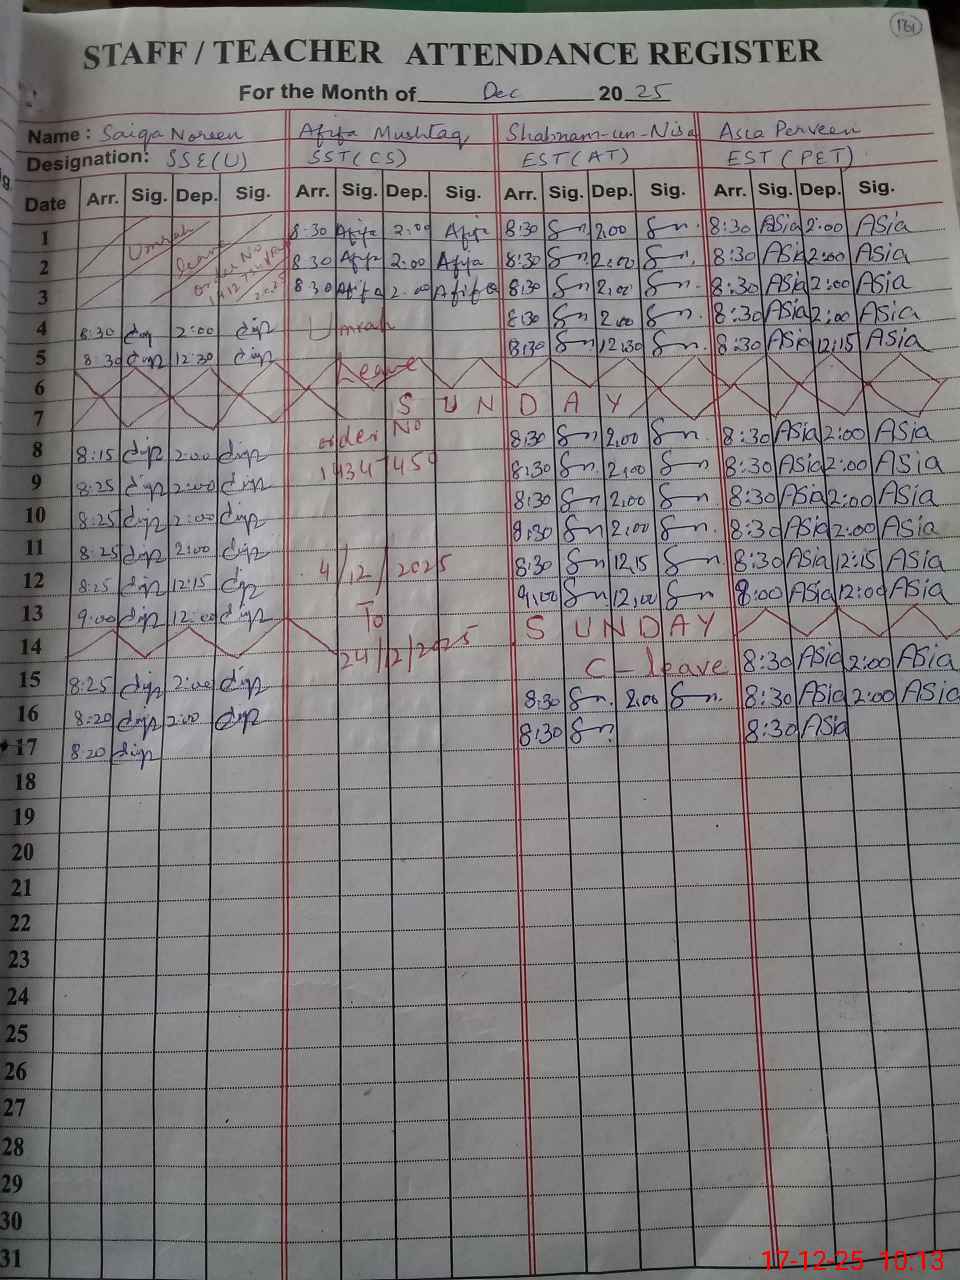 161
STAFF / TEACHER ATTENDANCE REGISTER
For the Month of Dec 20 25
Name : Saiqa Noreen Afifa Mushtaq Shabnam-un-Nisa Asia Perveen
Designation: SSE(U) SST(CS) EST(AT) EST(PET)
Date Arr. Sig. Dep. Sig. Arr. Sig. Dep. Sig. Arr. Sig. Dep. Sig. Arr. Sig. Dep. Sig.
1 Umrah 8:30 Afifa 2:00 Afifa 8:30 2:00 8:30 Asia 2:00 Asia
2 leave 8:30 Afifa 2:00 Afifa 8:30 2:00 8:30 Asia 2:00 Asia
3 order No 8:30 Afifa 2:00 Afifa 8:30 2:00 8:30 Asia 2:00 Asia
4 8:30 2:00 Umrah 8:30 2:00 8:30 Asia 2:00 Asia
5 8:30 12:30 Leave 8:30 12:30 8:30 Asia 12:15 Asia
6
7 SUNDAY
8 8:15 2:00 order No 8:30 2:00 8:30 Asia 2:00 Asia
9 8:25 2:00 8:30 2:00 8:30 Asia 2:00 Asia
10 8:25 2:00 8:30 2:00 8:30 Asia 2:00 Asia
11 8:25 2:00 8:30 2:00 8:30 Asia 2:00 Asia
12 8:25 12:15 4/12/2025 8:30 12:15 8:30 Asia 12:15 Asia
13 9:00 12:00 To 9:00 12:00 8:00 Asia 12:00 Asia
14 24/12/2025 SUNDAY
15 8:25 2:00 C-leave 8:30 Asia 2:00 Asia
16 8:20 2:00 8:30 2:00 8:30 Asia 2:00 Asia
17 8:20 8:30 8:30 Asia
18
19
20
21
22
23
24
25
26
27
28
29
30
31
17-12-25 10:13